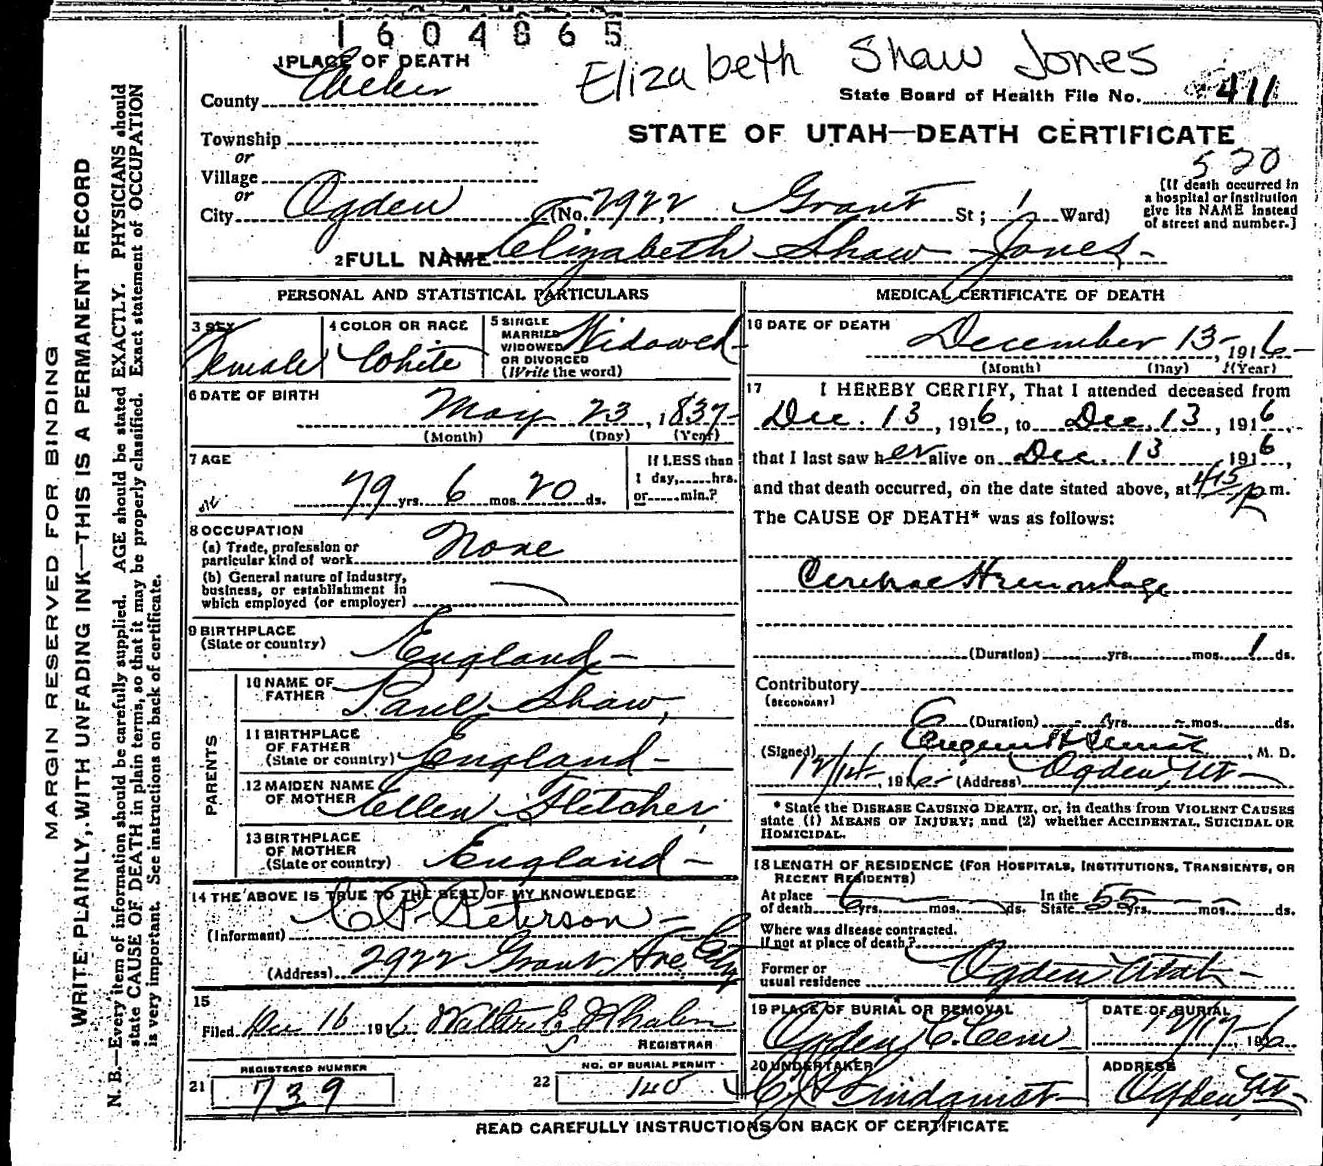 1604865
Elizabeth Shaw Jones
1 PLACE OF DEATH
County Weber
State Board of Health File No. 411
Township
or
STATE OF UTAH—DEATH CERTIFICATE
520
Village
or
City Ogden (No. 2922 Grant St; Ward)
[If death occurred in
a hospital or institution
give its NAME instead
of street and number.]
2 FULL NAME Elizabeth Shaw Jones
PERSONAL AND STATISTICAL PARTICULARS
3 SEX
Female
4 COLOR OR RACE
White
5 SINGLE
MARRIED
WIDOWED
OR DIVORCED
(Write the word)
Widowed
6 DATE OF BIRTH
May 23, 1837
(Month) (Day) (Year)
7 AGE
79 yrs. 6 mos. 20 ds.
If LESS than
1 day,......hrs.
or......min.?
8 OCCUPATION
(a) Trade, profession or
particular kind of work None
(b) General nature of industry,
business, or establishment in
which employed (or employer)
9 BIRTHPLACE
(State or country) England
PARENTS
10 NAME OF
FATHER Paul Shaw
11 BIRTHPLACE
OF FATHER
(State or country) England
12 MAIDEN NAME
OF MOTHER Ellen Fletcher
13 BIRTHPLACE
OF MOTHER
(State or country) England
14 THE ABOVE IS TRUE TO THE BEST OF MY KNOWLEDGE
(Informant) Peterson
(Address) 2922 Grant Ave City
15
Filed Dec 16 1916 Walter E Whalen
REGISTRAR
21 REGISTERED NUMBER
739
22 NO. OF BURIAL PERMIT
140
MEDICAL CERTIFICATE OF DEATH
16 DATE OF DEATH
December 13, 1916
(Month) (Day) (Year)
17 I HEREBY CERTIFY, That I attended deceased from
Dec. 13, 1916, to Dec. 13, 1916,
that I last saw her alive on Dec. 13 1916,
and that death occurred, on the date stated above, at 4:15 p m.
The CAUSE OF DEATH* was as follows:
Hemorhage
(Duration) yrs. mos. 1 ds.
Contributory
(SECONDARY)
(Duration) yrs. mos. ds.
(Signed) , M. D.
12/14, 1916 (Address) Ogden, Ut
* State the DISEASE CAUSING DEATH, or, in deaths from VIOLENT CAUSES
state (1) MEANS OF INJURY; and (2) whether ACCIDENTAL, SUICIDAL OR
HOMICIDAL.
18 LENGTH OF RESIDENCE (FOR HOSPITALS, INSTITUTIONS, TRANSIENTS, OR
RECENT RESIDENTS)
At place
of death 6 yrs. mos. ds.
In the
State 55 yrs. mos. ds.
Where was disease contracted,
if not at place of death?
Former or
usual residence Ogden Utah
19 PLACE OF BURIAL OR REMOVAL
Ogden C. Cem
DATE OF BURIAL
12/17, 1916
20 UNDERTAKER
Lindquist
ADDRESS
Ogden Ut
READ CAREFULLY INSTRUCTIONS ON BACK OF CERTIFICATE
MARGIN RESERVED FOR BINDING
WRITE PLAINLY, WITH UNFADING INK—THIS IS A PERMANENT RECORD
N. B.—Every item of information should be carefully supplied. AGE should be stated EXACTLY. PHYSICIANS should
state CAUSE OF DEATH in plain terms, so that it may be properly classified. Exact statement of OCCUPATION
is very important. See instructions on back of certificate.